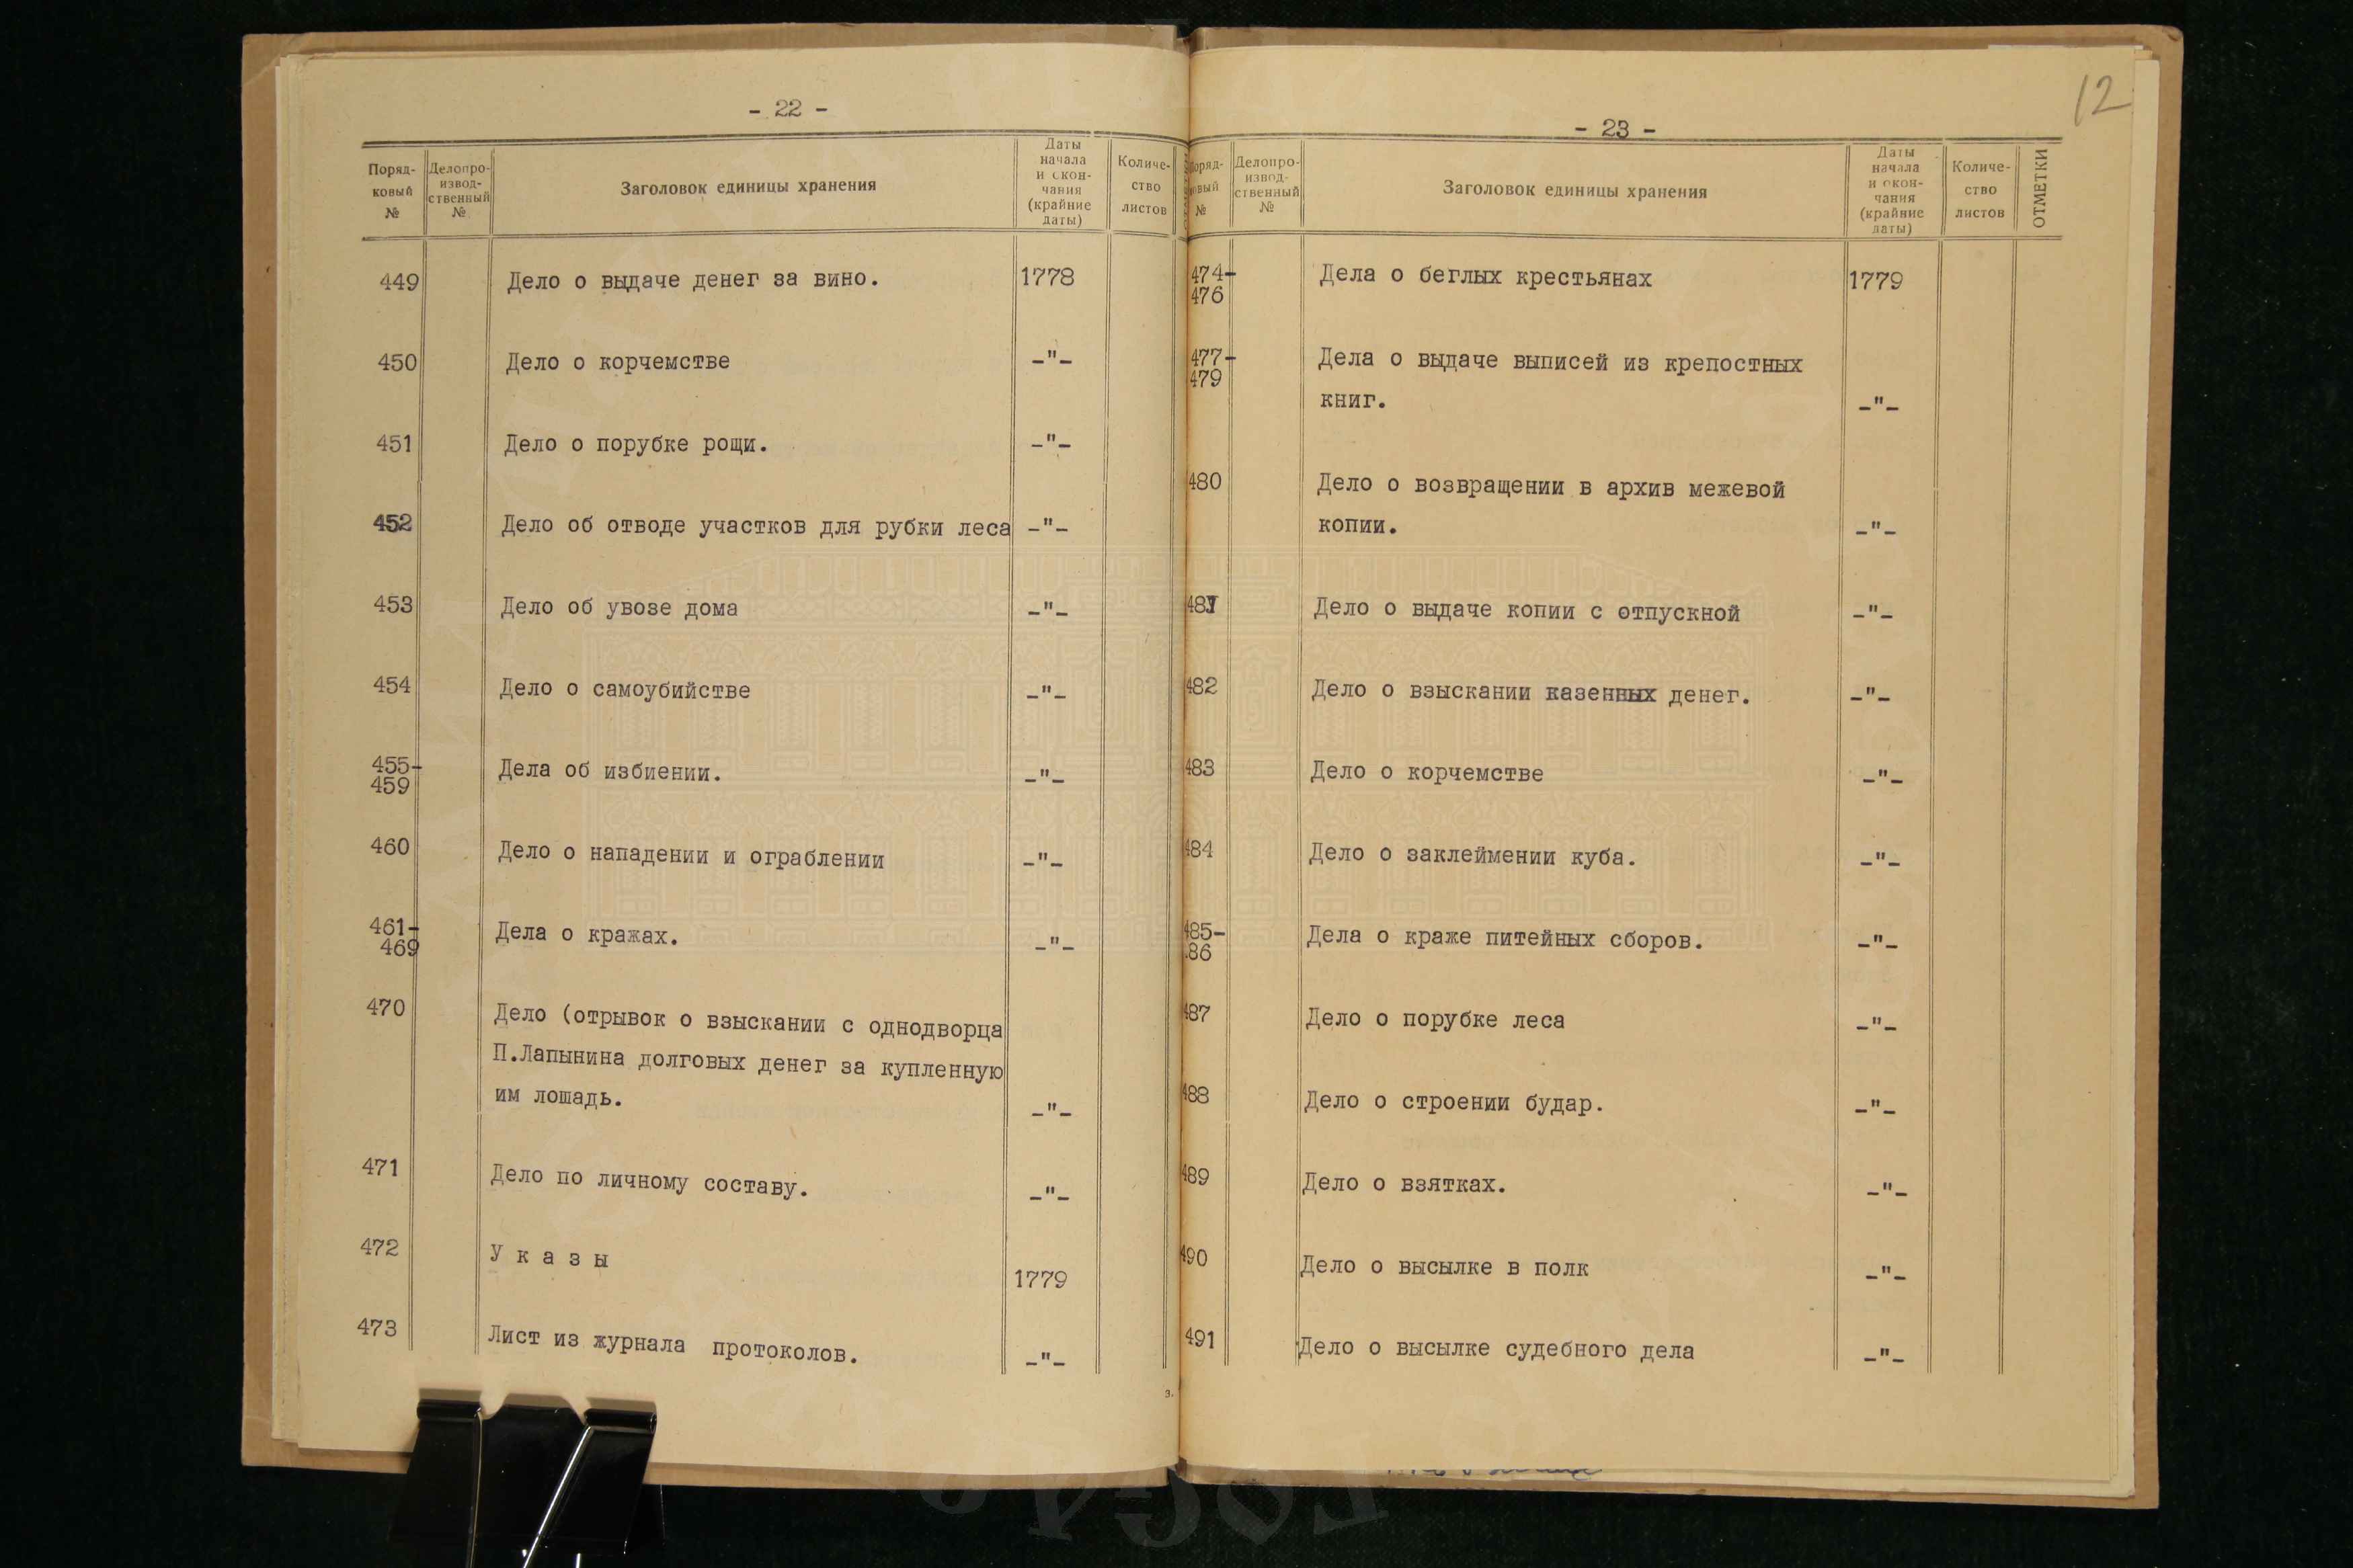 - 22 -
Поряд-
ковый
№
Делопро-
извод-
ственный
№
Заголовок единицы хранения
Даты
начала
и окон-
чания
(крайние
даты)
Количе-
ство
листов
449 Дело о выдаче денег за вино. 1778
450 Дело о корчемстве -"-
451 Дело о порубке рощи. -"-
452 Дело об отводе участков для рубки леса -"-
453 Дело об увозе дома -"-
454 Дело о самоубийстве -"-
455- Дела об избиении. -"-
459
460 Дело о нападении и ограблении -"-
461- Дела о кражах. -"-
469
470 Дело (отрывок о взыскании с однодворца
П.Лапынина долговых денег за купленную
им лошадь. -"-
471 Дело по личному составу. -"-
472 У к а з ы 1779
473 Лист из журнала протоколов. -"-
3.
12
- 23 -
Поряд-
ковый
№
Делопро-
извод-
ственный
№
Заголовок единицы хранения
Даты
начала
и окон-
чания
(крайние
даты)
Количе-
ство
листов
ОТМЕТКИ
474- Дела о беглых крестьянах 1779
476
477- Дела о выдаче выписей из крепостных
479 книг. -"-
480 Дело о возвращении в архив межевой
копии. -"-
481 Дело о выдаче копии с отпускной -"-
482 Дело о взыскании казенных денег. -"-
483 Дело о корчемстве -"-
484 Дело о заклеймении куба. -"-
485- Дела о краже питейных сборов. -"-
86
487 Дело о порубке леса -"-
488 Дело о строении будар. -"-
489 Дело о взятках. -"-
490 Дело о высылке в полк -"-
491 Дело о высылке судебного дела -"-